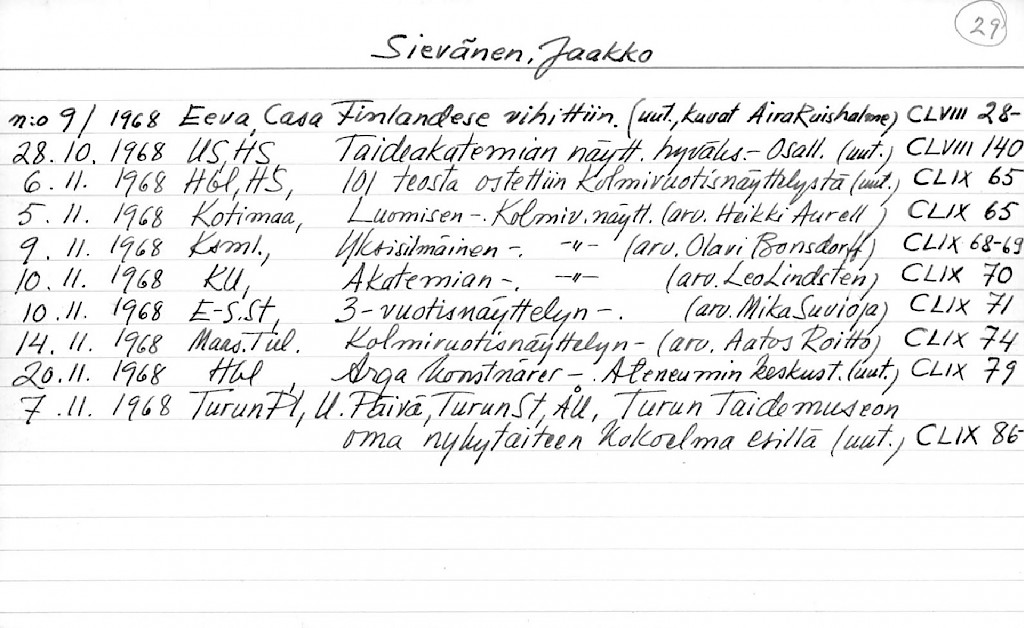 29
Sievänen, Jaakko
n:o 9/ 1968 Eeva, Casa Finlandese vihittiin. (uut., kuvat Aira Ruishalme) CLVIII 28-
28.10.1968 US, HS, Taideakatemian näytt. hyväks.- Osall. (uut.) CLVIII 140
6.11.1968 Hbl, HS, 101 teosta ostettiin Kolmivuotisnäyttelystä (uut.) CLIX 65
5.11.1968 Kotimaa, Luomisen -. Kolmiv. näytt. (arv. Heikki Aurell) CLIX 65
9.11.1968 Ksml., Yksisilmäinen -. -"- (arv. Olavi Bonsdorff) CLIX 68-69
10.11.1968 KU, Akatemian -. -"- (arv. Leo Lindsten) CLIX 70
10.11.1968 E-S.St, 3-vuotisnäyttelyn -. (arv. Mika Suvioja) CLIX 71
14.11.1968 Maas.Tul. Kolmivuotisnäyttelyn - (arv. Aatos Roitto) CLIX 74
20.11.1968 Hbl, Arga konstnärer -. Ateneumin keskust. (uut.) CLIX 79
7.11.1968 Turun Pl, U. Päivä, Turun St, ÅU, Turun Taidemuseon
oma nykytaiteen kokoelma esillä (uut.) CLIX 86-